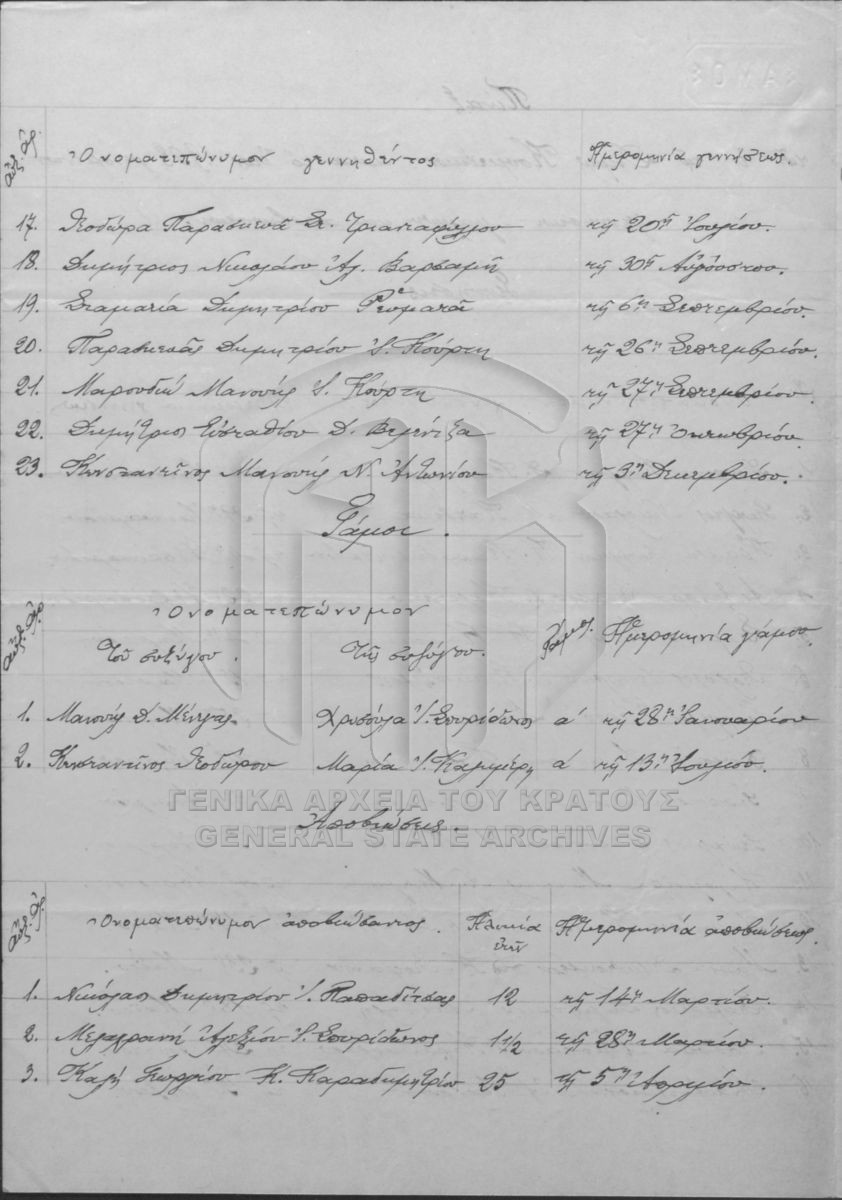 ΣΑΜΟΣ
Αὔξ. Ἀρ. Ὀνοματεπώνυμον γεννηθέντος Ἡμερομηνία γεννήσεως.
17. Θεοδώρα Παρασκευᾶ Στ. Τριανταφύλλου τῇ 20ῇ Ἰουλίου.
18. Δημήτριος Νικολάου Ἀλ. Βαρβαμῆ τῇ 30ῇ Αὐγούστου.
19. Σταματία Δημητρίου Ρευματᾶ τῇ 6ῃ Σεπτεμβρίου.
20. Παρασκευᾶς Δημητρίου Ἰ. Κούρτη τῇ 26ῃ Σεπτεμβρίου.
21. Μαρουδιὼ Μανουὴλ Ἰ. Κούρτη τῇ 27ῃ Σεπτεμβρίου.
22. Δημήτριος Εὐσταθίου Δ. Βελέντζα τῇ 27ῃ Ὀκτωβρίου.
23. Κωνσταντῖνος Μανουὴλ Ν. Ἀντωνίου τῇ 3ῃ Δεκεμβρίου.
Γάμοι.
Αὔξ. Ἀρ. Ὀνοματεπώνυμον
Τοῦ συζύγου. Τῆς συζύγου. Ἡμερομηνία γάμου.
1. Μανουὴλ Δ. Χρυσούλα Ἰ. Σπυρίδωνος α' τῇ 28ῃ Ἰανουαρίου
2. Κωνσταντῖνος Θεοδώρου Μαρία Ἰ. Καλημέρη α' τῇ 13ῃ Ἰουλίου.
ΓΕΝΙΚΑ ΑΡΧΕΙΑ ΤΟΥ ΚΡΑΤΟΥΣ
GENERAL STATE ARCHIVES
Ἀποβιώσεις.
Αὔξ. Ἀρ. Ὀνοματεπώνυμον ἀποβιώσαντος. Ἡλικία ἐτῶν Ἡμερομηνία ἀποβιώσεως.
1. Νικόλαος Δημητρίου Ἰ. Παπαδίτσας 12 τῇ 14ῃ Μαρτίου.
2. Μελαχροινὴ Ἀλεξίου Ἰ. Σπυρίδωνος 1 1/2 τῇ 28ῃ Μαρτίου.
3. Καλὴ Γεωργίου Κ. Καραδημητρίου 25 τῇ 5ῃ Ἀπριλίου.